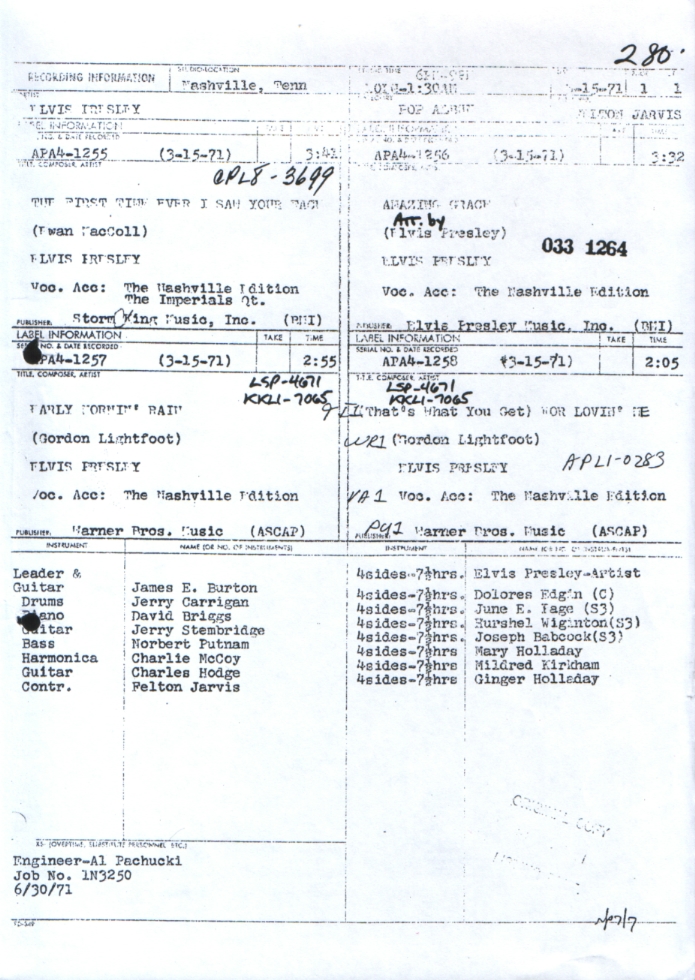 280
RECORDING INFORMATION
Nashville, Tenn
-1:30AM
-15-71 1 1
ELVIS PRESLEY
POP ALBUM
FELTON JARVIS
LABEL INFORMATION
NO. & DATE RECORDED
APA4-1255 (3-15-71) 3:42
APA4-1256 (3-15-71) 3:32
TITLE, COMPOSER, ARTIST
CPL8-3699
THE FIRST TIME EVER I SAW YOUR FACE
AMAZING GRACE
Arr. by
(Ewan MacColl)
(Elvis Presley)
033 1264
ELVIS PRESLEY
ELVIS PRESLEY
Voc. Acc: The Nashville Edition
The Imperials Qt.
Voc. Acc: The Nashville Edition
PUBLISHER Storm King Music, Inc. (BMI)
PUBLISHER Elvis Presley Music, Inc. (BMI)
LABEL INFORMATION TAKE TIME
LABEL INFORMATION TAKE TIME
NO. & DATE RECORDED
SERIAL NO. & DATE RECORDED
PA4-1257 (3-15-71) 2:55
APA4-1258 (3-15-71) 2:05
TITLE, COMPOSER, ARTIST
LSP-4671
KKL1-7065
LSP-4671
KKL1-7065
EARLY MORNIN' RAIN
(That's What You Get) FOR LOVIN' ME
(Gordon Lightfoot)
WR1 (Gordon Lightfoot)
ELVIS PRESLEY
ELVIS PRESLEY
APL1-0283
Voc. Acc: The Nashville Edition
VA1 Voc. Acc: The Nashville Edition
PUBLISHER Warner Bros. Music (ASCAP)
PU1 Warner Bros. Music (ASCAP)
INSTRUMENT NAME (OR NO. OF INSTRUMENTS)
INSTRUMENT
Leader &
Guitar James E. Burton
Drums Jerry Carrigan
Piano David Briggs
Guitar Jerry Stembridge
Bass Norbert Putnam
Harmonica Charlie McCoy
Guitar Charles Hodge
Contr. Felton Jarvis
4sides-7½hrs. Elvis Presley-Artist
4sides-7½hrs. Dolores Edgin (C)
4sides-7½hrs. June E. Page (S3)
4sides-7½hrs. Hurshel Wiginton(S3)
4sides-7½hrs. Joseph Babcock(S3)
4sides-7½hrs Mary Holladay
4sides-7½hrs Mildred Kirkham
4sides-7½hrs Ginger Holladay
ORIGINAL COPY
Engineer-Al Pachucki
Job No. 1N3250
6/30/71